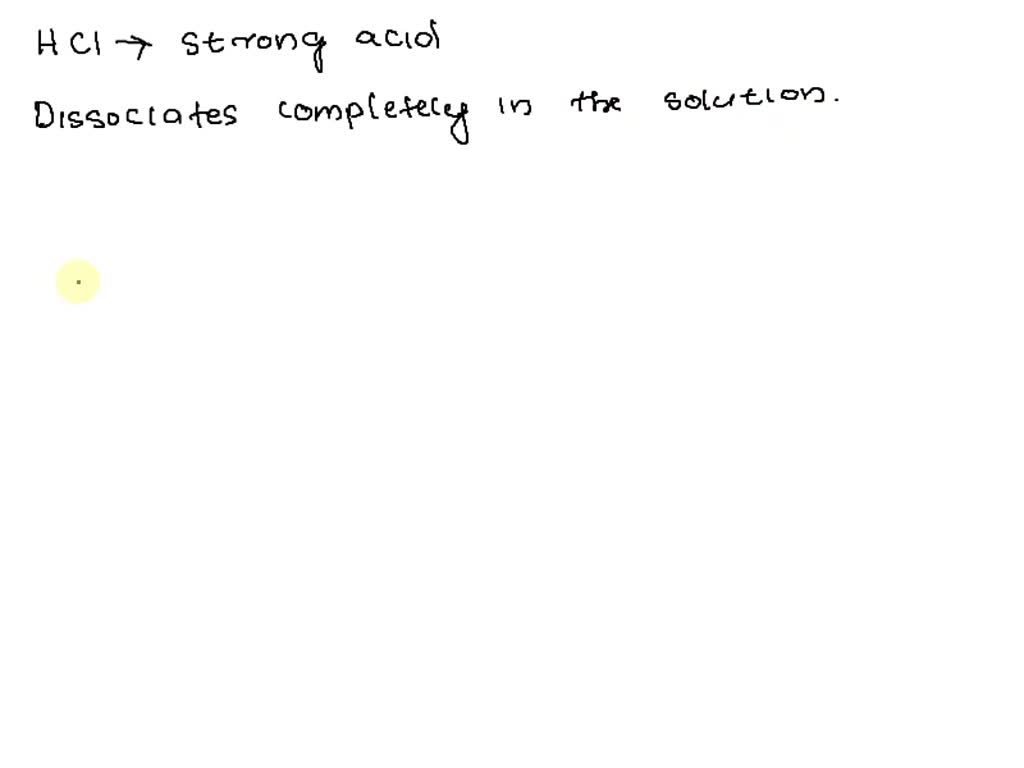 HCl → strong acid
Dissociates completely in the solution.